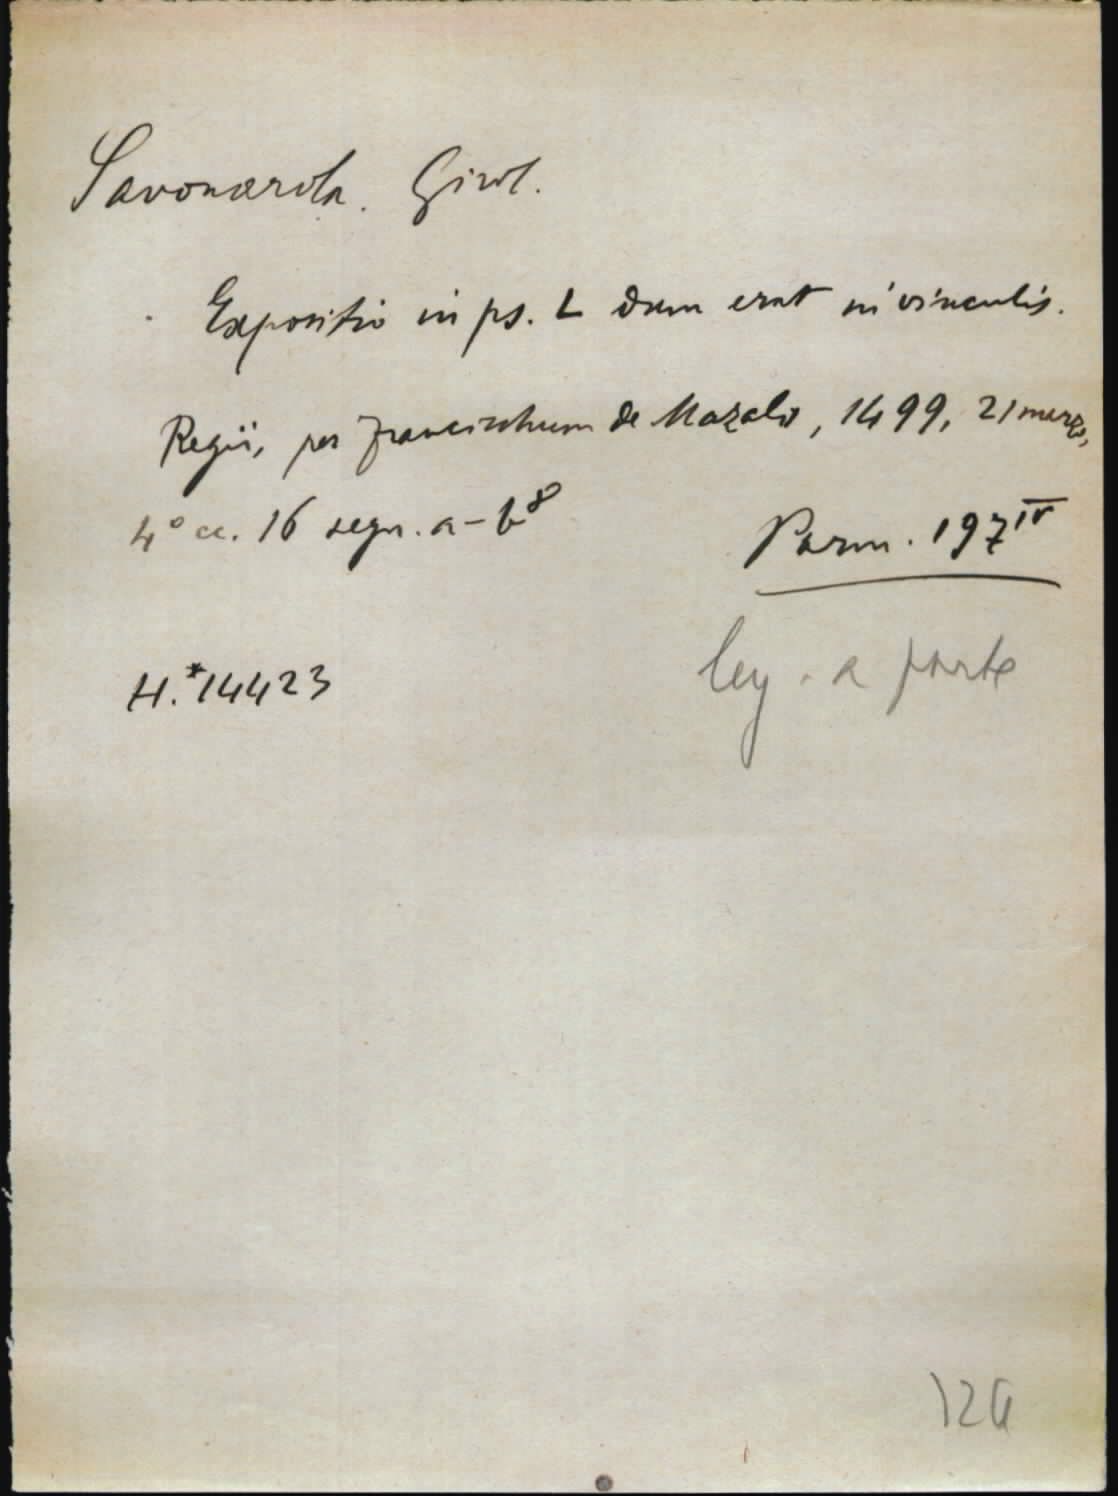 Savonarola. Girol.
Expositio in ps. L dum erat in vinculis.
Regii, per Francischum de Mazalis, 1499, 21 marzo,
4° cc. 16 segn. a-b⁸
Parm. 197 IV
H.*14423
leg. a parte